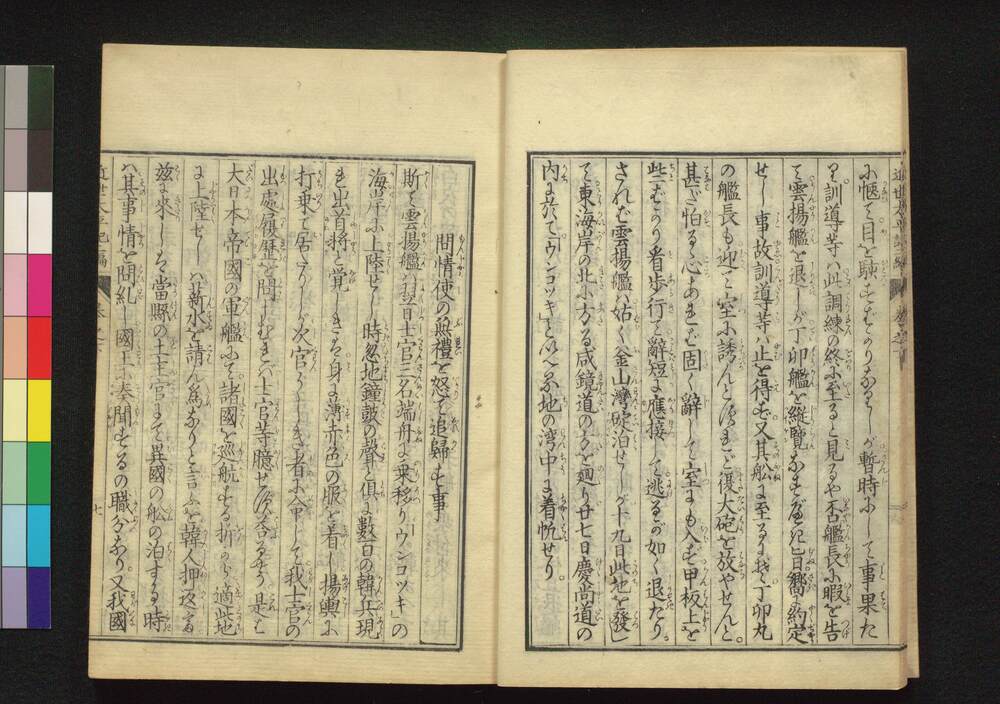 ふ愜て目を駭すばかりなりしが暫時にして事果た
り訓導等ハ此調練の終に至ると見るや否艦長に暇を告
て雲揚艦を退しが丁卯艦を縦覽なすべき旨嚮に約定
せし事故訓導等ハ止を得ず又其舩に至るにぞ丁卯丸
の艦長も迎て室に誘んとすれど復大砲を放やせんと
甚ざ怕るゝ心あれバ固く辭して室にも入ず甲板上を
些ばかり看歩行て辭短に應接して逃るが如く退たり
されバ雲揚艦ハ姑く釜山灣碇泊せしが十九日此地を發
て東海岸の北に方る咸鏡道のかたを廻り廿七日慶尚道の
内に於て「ウンコツキ」といへる地の湾中に着帆せり
問情使の無禮を怒て追歸す事
斯て雲揚艦ハ翌日士官三名端舟に乗移り「ウンコツキ」の
海岸に上陸せし時忽地鐘皷の聲と倶に數百の韓兵現
れ出首將と覚しきハ身に薄赤色の服を着し揚輿に
打乗て居たりしが次官らしき者に命じて我士官の
出處履歴を問しむれバ士官等臆せず答るやう是ハ
大日本帝國の軍艦にて諸國を巡航する折から適此地
に上陸せしハ薪水を請ん為なりと言ふを韓人押返し
茲に來しハ當縣の士官にて異國の舩の泊する時
ハ其事情を問糺し國王に奏聞するの職分なり又我國
近世太平記
七